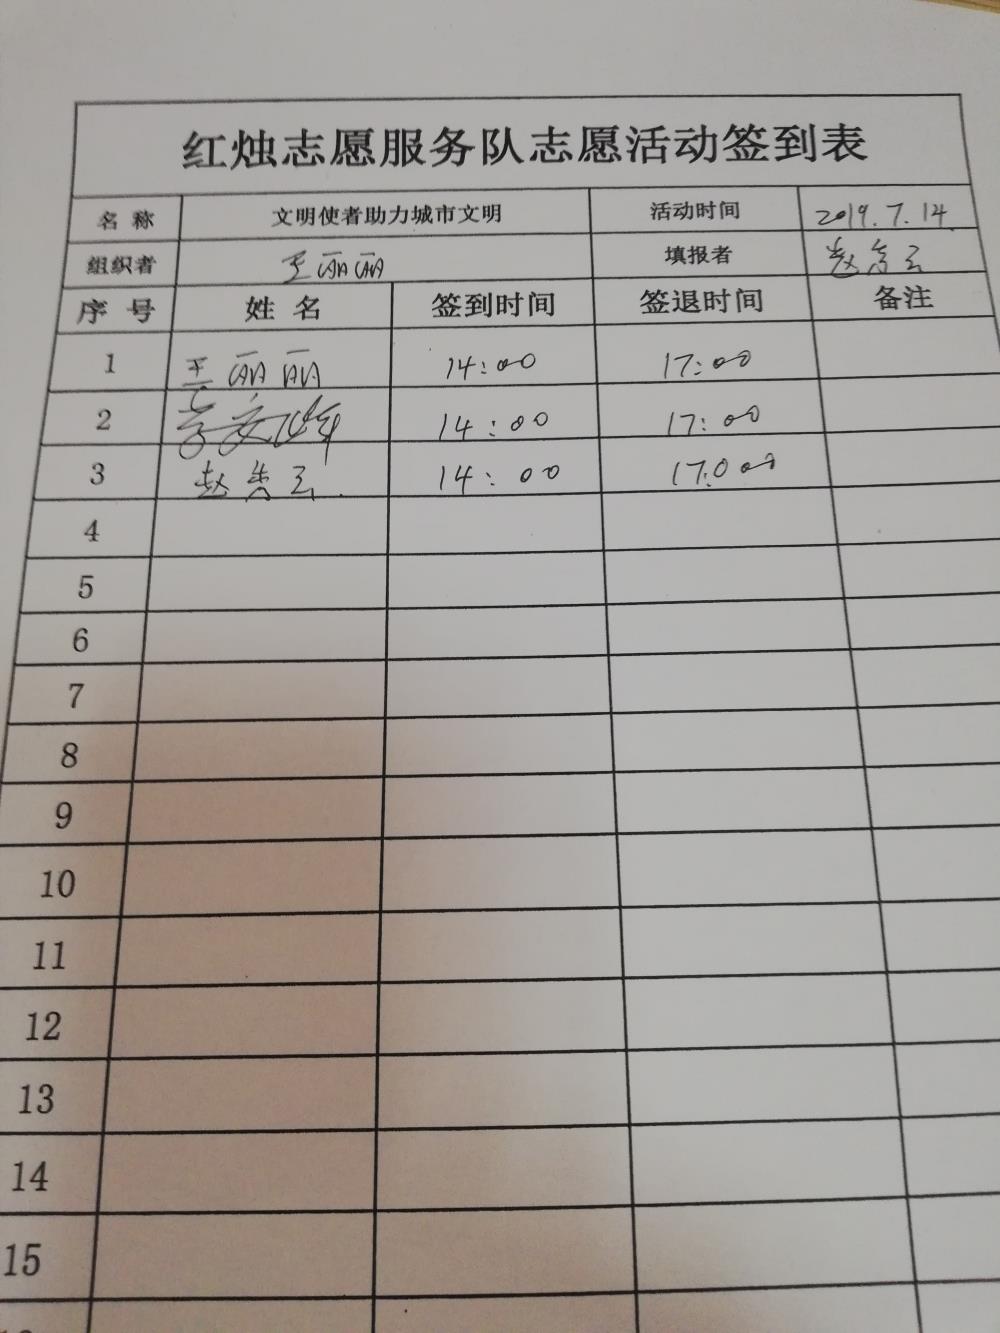 红烛志愿服务队志愿活动签到表
名称 文明使者助力城市文明 活动时间 2019.7.14
组织者 王丽丽 填报者 赵秀云
序号 姓名 签到时间 签退时间 备注
1 王丽丽 14:00 17:00
2 14:00 17:00
3 赵秀云 14:00 17:00
4
5
6
7
8
9
10
11
12
13
14
15